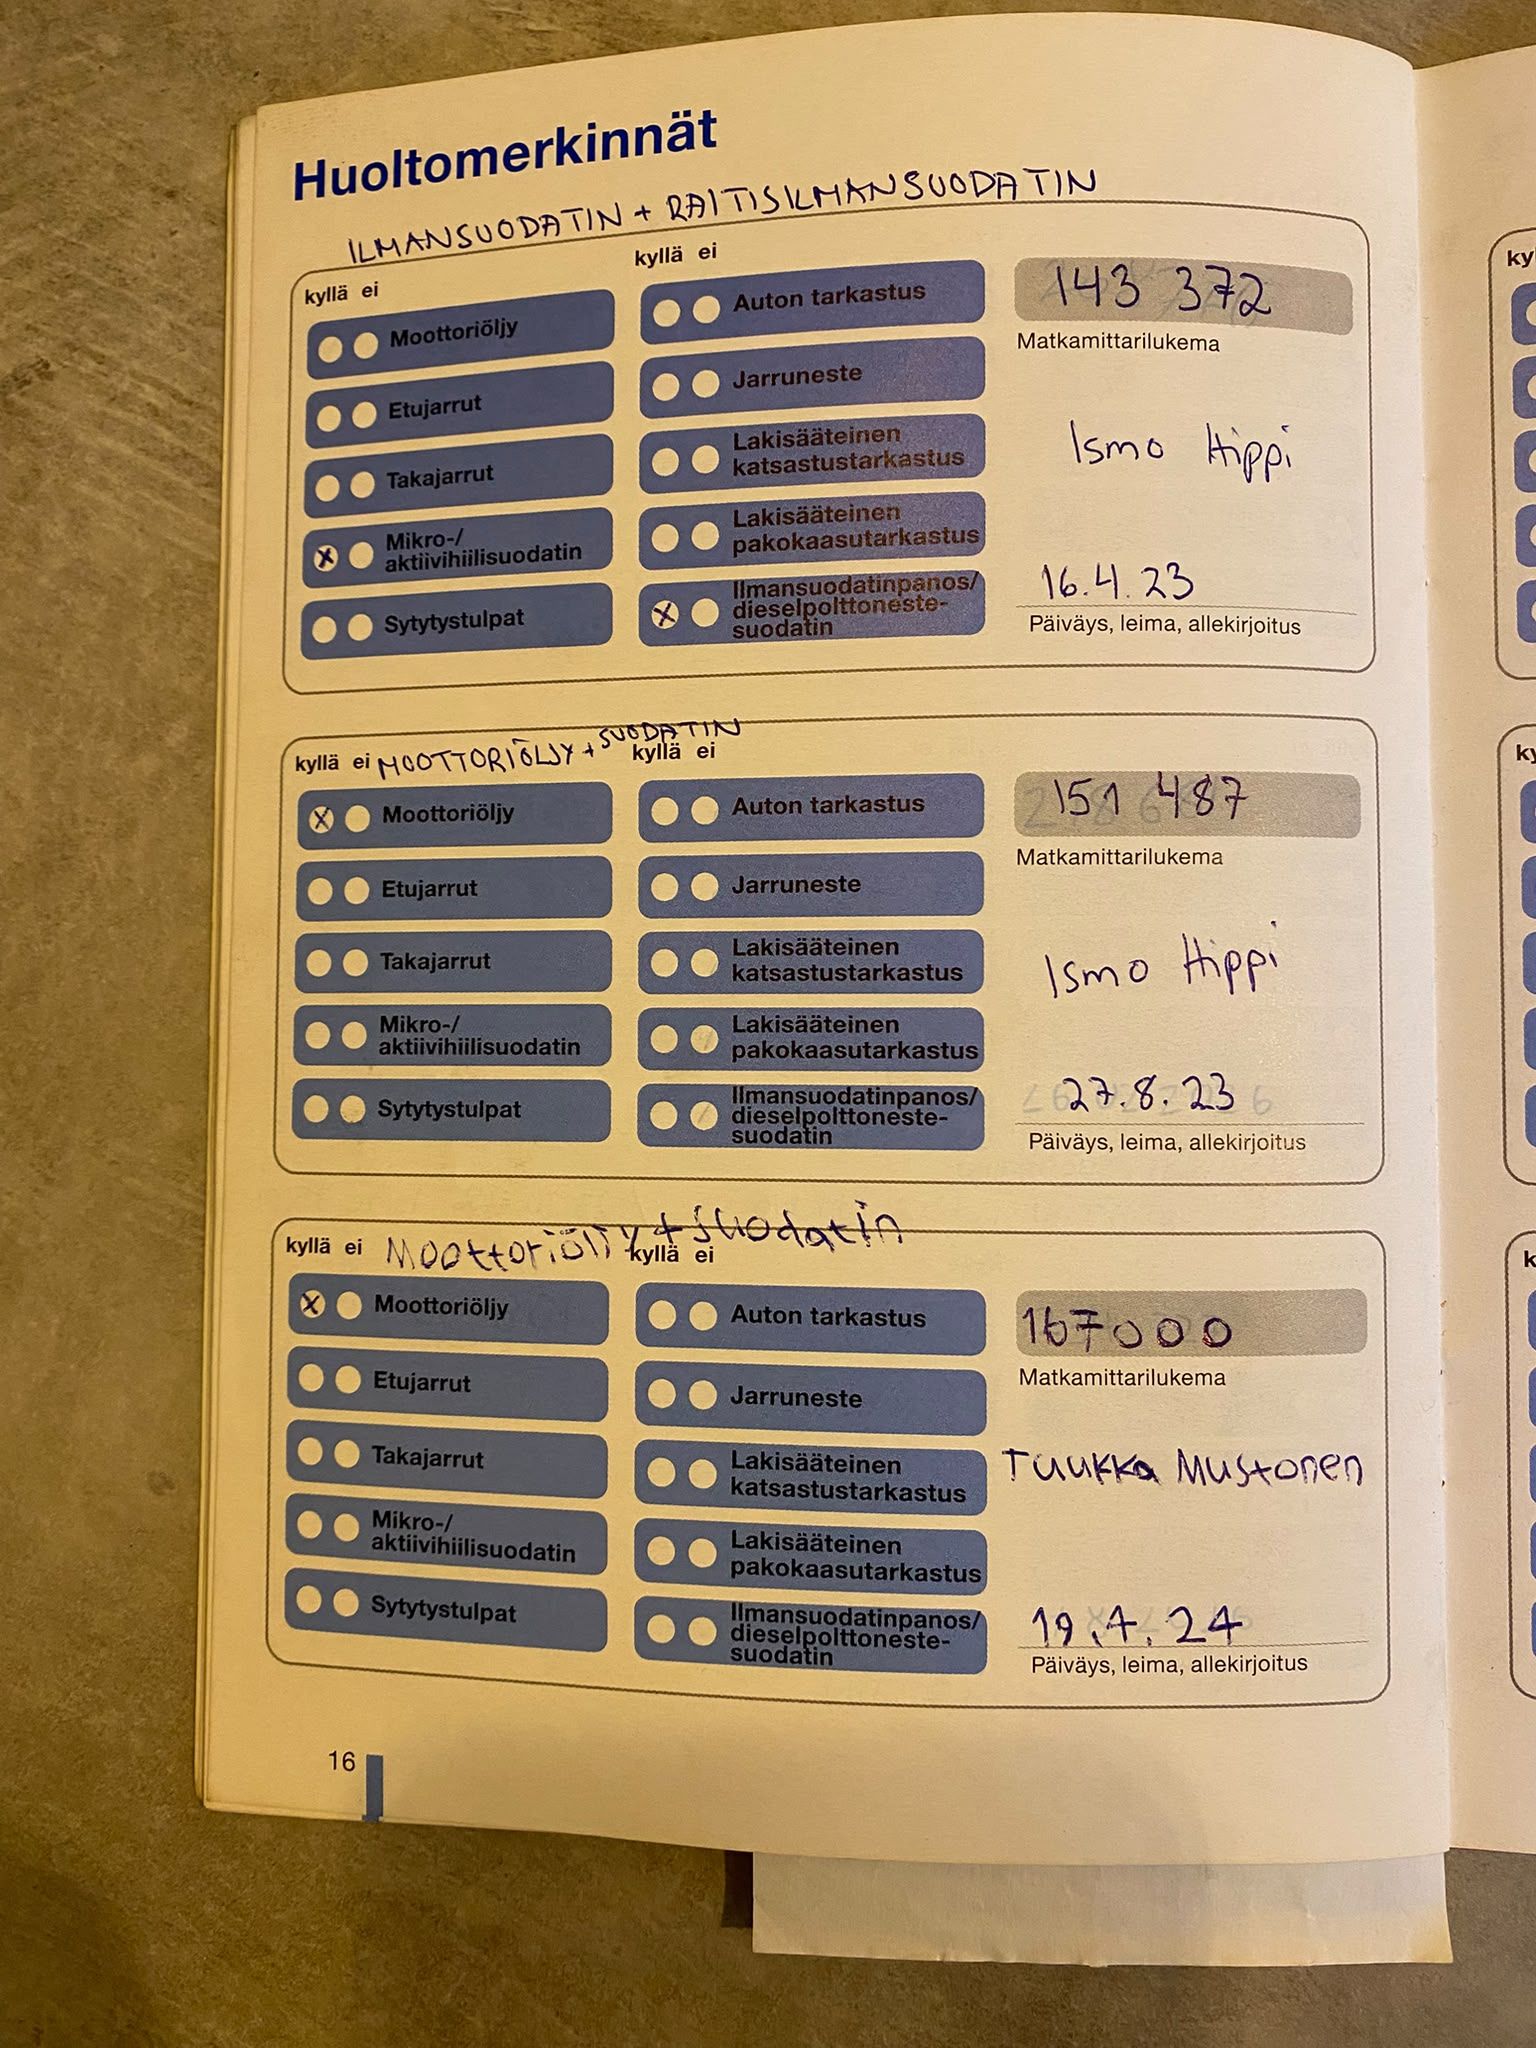 Huoltomerkinnät
ILMANSUODATIN + RAITISILMANSUODATIN
kyllä ei
Moottoriöljy
Etujarrut
Takajarrut
X Mikro-/
aktiivihiilisuodatin
Sytytystulpat
kyllä ei
Auton tarkastus
Jarruneste
Lakisääteinen
katsastustarkastus
Lakisääteinen
pakokaasutarkastus
X Ilmansuodatinpanos/
dieselpolttoneste-
suodatin
143 372
Matkamittarilukema
Ismo Hippi
16.4.23
Päiväys, leima, allekirjoitus
MOOTTORIÖLJY + SUODATIN
kyllä ei
X Moottoriöljy
Etujarrut
Takajarrut
Mikro-/
aktiivihiilisuodatin
Sytytystulpat
kyllä ei
Auton tarkastus
Jarruneste
Lakisääteinen
katsastustarkastus
Lakisääteinen
pakokaasutarkastus
Ilmansuodatinpanos/
dieselpolttoneste-
suodatin
151 487
Matkamittarilukema
Ismo Hippi
27.8.23
Päiväys, leima, allekirjoitus
Moottoriöljy + suodatin
kyllä ei
X Moottoriöljy
Etujarrut
Takajarrut
Mikro-/
aktiivihiilisuodatin
Sytytystulpat
kyllä ei
Auton tarkastus
Jarruneste
Lakisääteinen
katsastustarkastus
Lakisääteinen
pakokaasutarkastus
Ilmansuodatinpanos/
dieselpolttoneste-
suodatin
167000
Matkamittarilukema
Tuukka Mustonen
Päiväys, leima, allekirjoitus
16